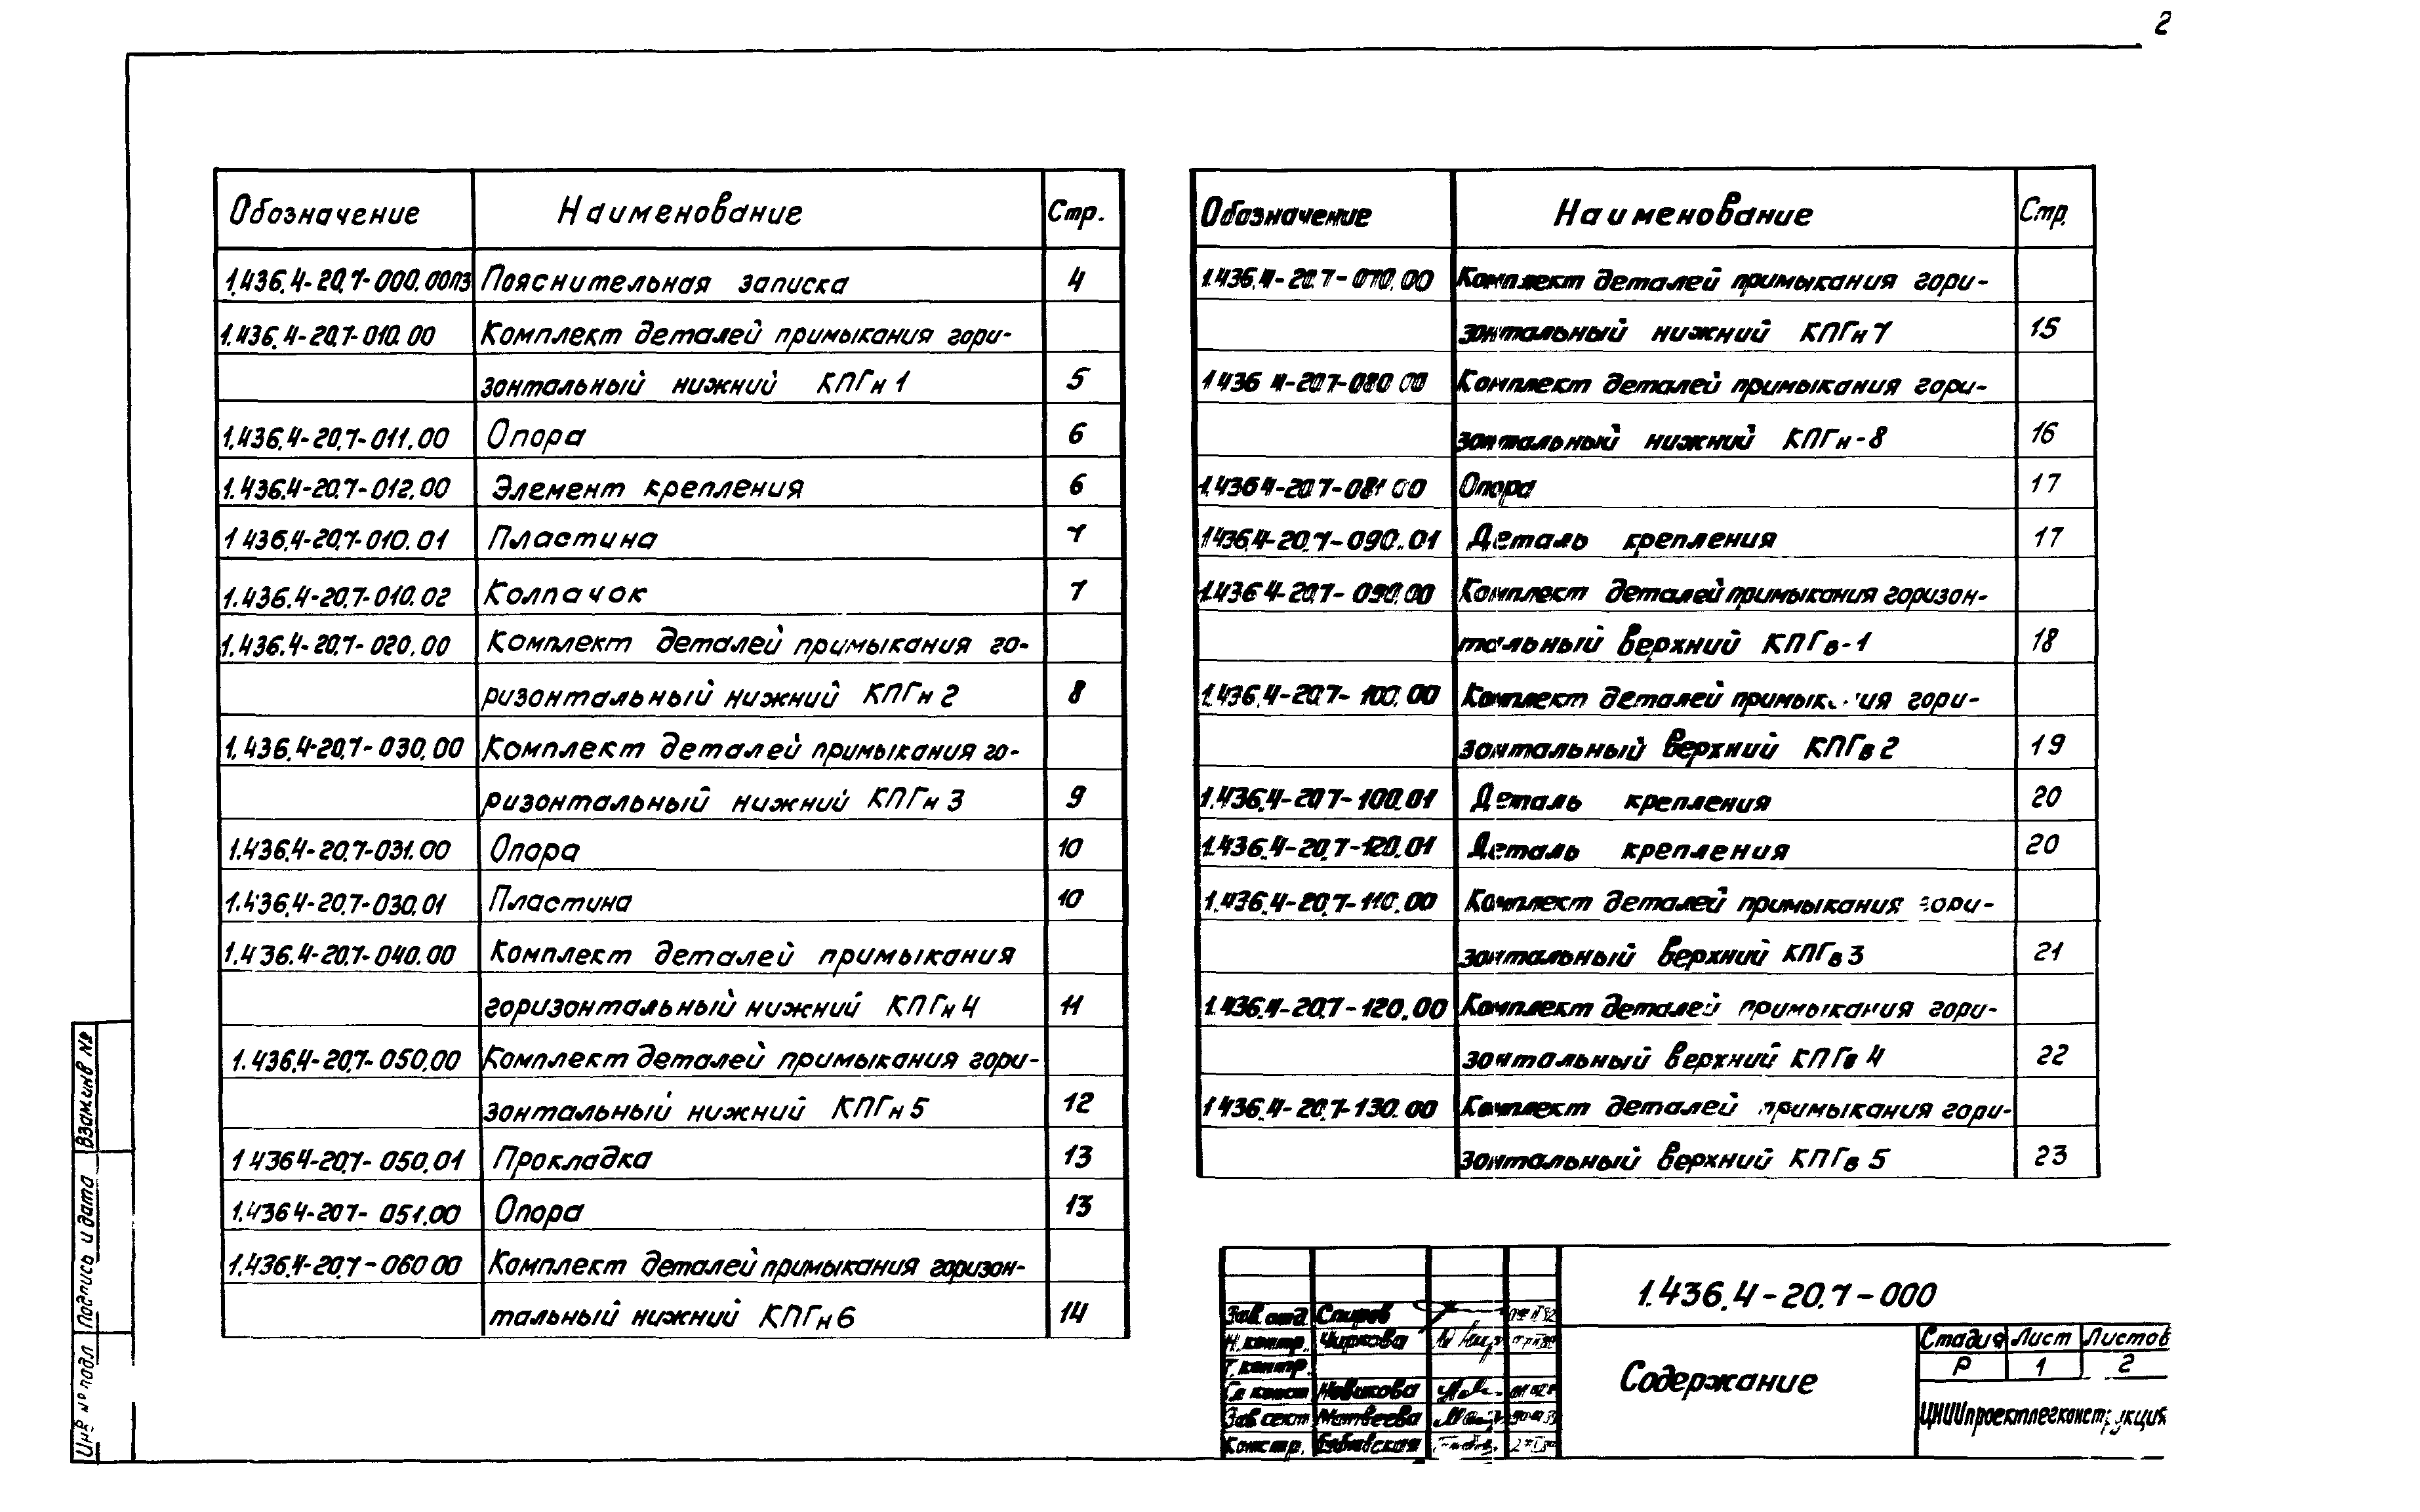 2
Обозначение Наименование Стр.
1.436.4-20.7-000.00ПЗ Пояснительная записка 4
1.436.4-20.7-010.00 Комплект деталей примыкания гори-
зонтальный нижний КПГн 1 5
1.436.4-20.7-011.00 Опора 6
1.436.4-20.7-012.00 Элемент крепления 6
1 436.4-20.7-010.01 Пластина 7
1.436.4-20.7-010.02 Колпачок 7
1.436.4-20.7-020.00 Комплект деталей примыкания го-
ризонтальный нижний КПГн 2 8
1.436.4-20.7-030.00 Комплект деталей примыкания го-
ризонтальный нижний КПГн 3 9
1.436.4-20.7-031.00 Опора 10
1.436.4-20.7-030.01 Пластина 10
1.436.4-20.7-040.00 Комплект деталей примыкания
горизонтальный нижний КПГн 4 11
1.436.4-20.7-050.00 Комплект деталей примыкания гори-
зонтальный нижний КПГн 5 12
1 436 4-20.7-050.01 Прокладка 13
1.436 4-20 7-051.00 Опора 13
1.436.4-20.7-060 00 Комплект деталей примыкания горизон-
тальный нижний КПГн 6 14
Обозначение Наименование Стр.
1.436.4-20.7-070.00 Комплект деталей примыкания гори-
зонтальный нижний КПГн 7 15
1 436 4-20.7-080 00 Комплект деталей примыкания гори-
зонтальный нижний КПГн-8 16
1.436 4-20 7-081 00 Опора 17
1 436.4-20.7-090.01 Деталь крепления 17
1.436 4-20.7-090.00 Комплект деталей примыкания горизон-
тальный верхний КПГв-1 18
1.436.4-20.7-100.00 Комплект деталей примыкания гори-
зонтальный верхний КПГв 2 19
1.436.4-20 7-100.01 Деталь крепления 20
1.436.4-20.7-120.01 Деталь крепления 20
1.436.4-20.7-110.00 Комплект деталей примыкания гори-
зонтальный верхний КПГв 3 21
1.436.4-20.7-120.00 Комплект деталей примыкания гори-
зонтальный верхний КПГв 4 22
1 436.4-20.7-130.00 Комплект деталей примыкания гори-
зонтальный верхний КПГв 5 23
Взам.инв №
Подпись и дата
Инв № подл
Зав. отд. Спиров
Н. контр. Чиркова
Т. контр.
Гл констр Новикова
Зав сект Матвеева
Констр.
1.436.4-20.7-000
Содержание
Стадия Лист Листов
Р 1 2
ЦНИИпроектлегконструкция